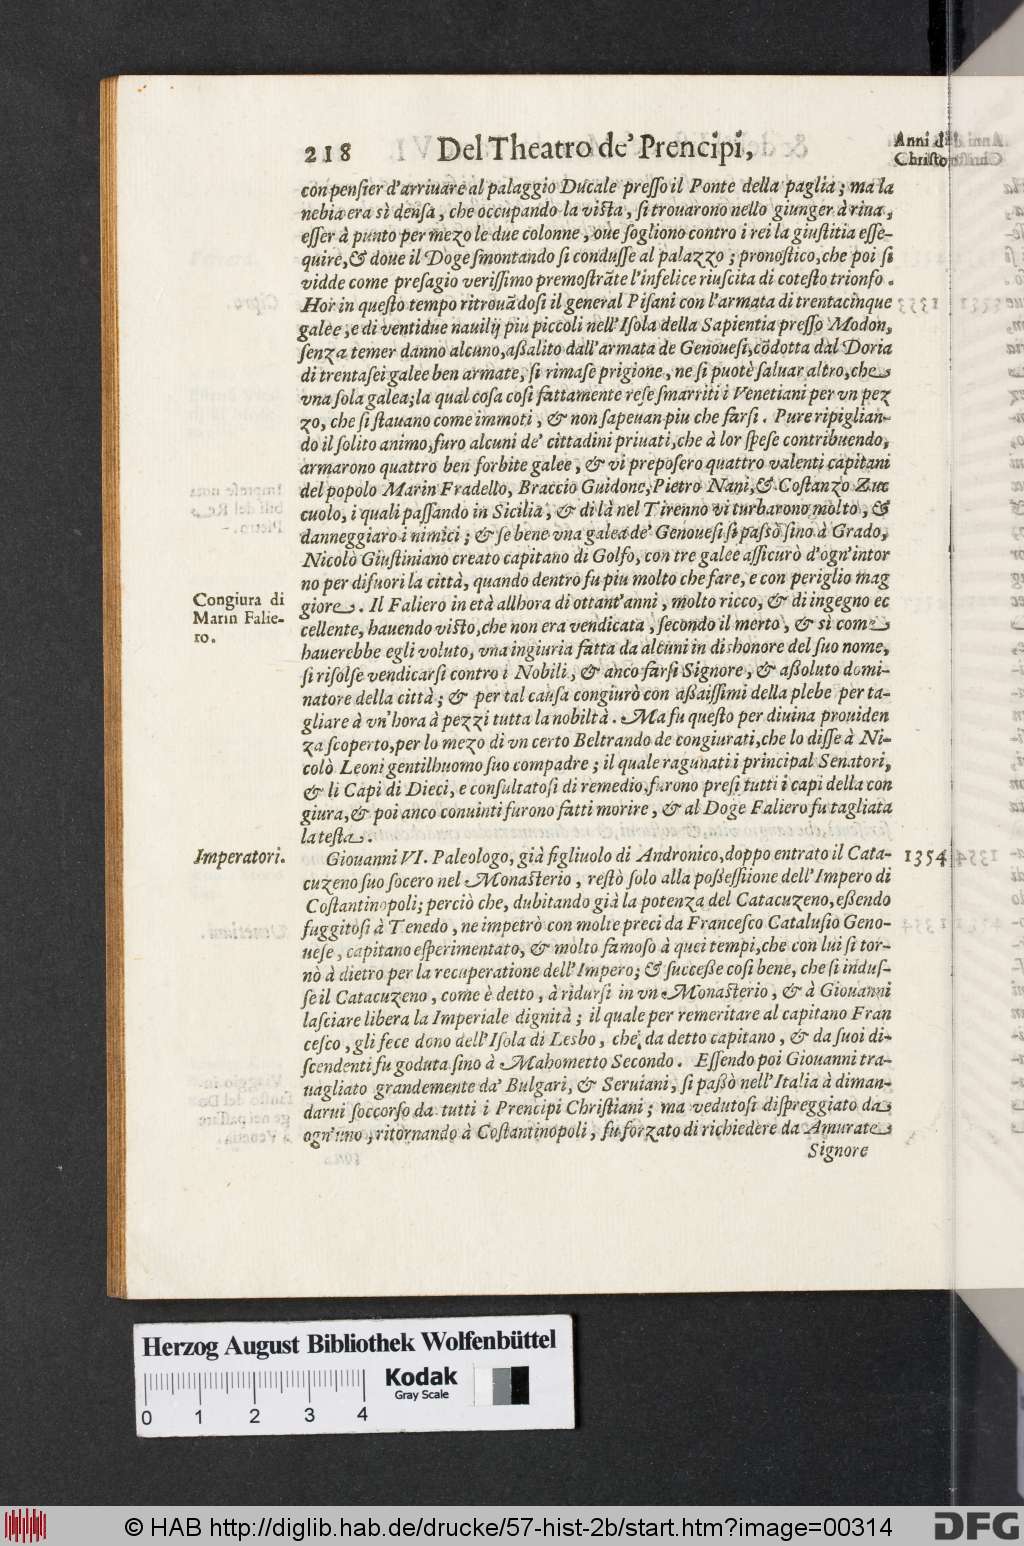 218 Del Theatro de' Prencipi,
Anni di
Christo
con pensier d'arriuare al palaggio Ducale presso il Ponte della paglia; ma la
nebia era sì densa, che occupando la vista, si trouarono nello giunger à riua,
esser à punto per mezo le due colonne, oue sogliono contro i rei la giustitia esse-
quire, & doue il Doge smontando si condusse al palazzo; pronostico, che poi si
vidde come presagio verissimo premostrāte l'infelice riuscita di cotesto trionfo.
Hor in questo tempo ritrouādosi il general Pisani con l'armata di trentacinque
galee, e di ventidue nauilij piu piccoli nell'Isola della Sapientia presso Modon,
senza temer danno alcuno, assalito dall'armata de Genouesi, cōdotta dal Doria
di trentasei galee ben armate, si rimase prigione, ne si puotè saluar altro, che
vna sola galea; la qual cosa cosi fattamente rese smarriti i Venetiani per vn pez
zo, che si stauano come immoti, & non sapeuan piu che farsi. Pure ripiglian-
do il solito animo, furo alcuni de' cittadini priuati, che à lor spese contribuendo,
armarono quattro ben forbite galee, & vi preposero quattro valenti capitani
del popolo Marin Fradello, Braccio Guidone, Pietro Nani, & Costanzo Zuc
cuolo, i quali passando in Sicilia, & di là nel Tirenno vi turbarono molto, &
danneggiaro i nimici; & se bene vna galea de' Genouesi si passò sino à Grado,
Nicolò Giustiniano creato capitano di Golfo, con tre galee assicurò d'ogn'intor
no per difuori la città, quando dentro fu piu molto che fare, e con periglio mag
Congiura di
Marin Falie-
ro.
giore. Il Faliero in età allhora di ottant'anni, molto ricco, & di ingegno ec
cellente, hauendo visto, che non era vendicata, secondo il merto, & sì come
hauerebbe egli voluto, vna ingiuria fatta da alcuni in dishonore del suo nome,
si risolse vendicarsi contro i Nobili, & anco farsi Signore, & assoluto domi-
natore della città; & per tal causa congiurò con assaissimi della plebe per ta-
gliare à vn'hora à pezzi tutta la nobiltà. Ma fu questo per diuina prouiden
za scoperto, per lo mezo di vn certo Beltrando de congiurati, che lo disse à Ni-
colò Leoni gentilhuomo suo compadre; il quale ragunati i principal Senatori,
& li Capi di Dieci, e consultatosi di remedio, furono presi tutti i capi della con
giura, & poi anco conuinti furono fatti morire, & al Doge Faliero fu tagliata
la testa.
Imperatori.
1354
Giouanni VI. Paleologo, già figliuolo di Andronico, doppo entrato il Cata-
cuzeno suo socero nel Monasterio, restò solo alla possessiione dell'Impero di
Costantinopoli; perciò che, dubitando già la potenza del Catacuzeno, essendo
fuggitosi à Tenedo, ne impetrò con molte preci da Francesco Catalusio Geno-
uese, capitano esperimentato, & molto famoso à quei tempi, che con lui si tor-
nò à dietro per la recuperatione dell'Impero; & successe cosi bene, che si indus-
se il Catacuzeno, come è detto, à ridursi in vn Monasterio, & à Giouanni
lasciare libera la Imperiale dignità; il quale per remeritare al capitano Fran
cesco, gli fece dono dell'Isola di Lesbo, che da detto capitano, & da suoi di-
scendenti fu goduta sino à Mahometto Secondo. Essendo poi Giouanni tra-
uagliato grandemente da' Bulgari, & Seruiani, si passò nell'Italia à diman-
darui soccorso da tutti i Prencipi Christiani; ma vedutosi dispreggiato da
ogn'uno, ritornando à Costantinopoli, fu forzato di richiedere da Amurate
Signore
Herzog August Bibliothek Wolfenbüttel
Kodak
Gray Scale
0 1 2 3 4
© HAB http://diglib.hab.de/drucke/57-hist-2b/start.htm?image=00314
DFG